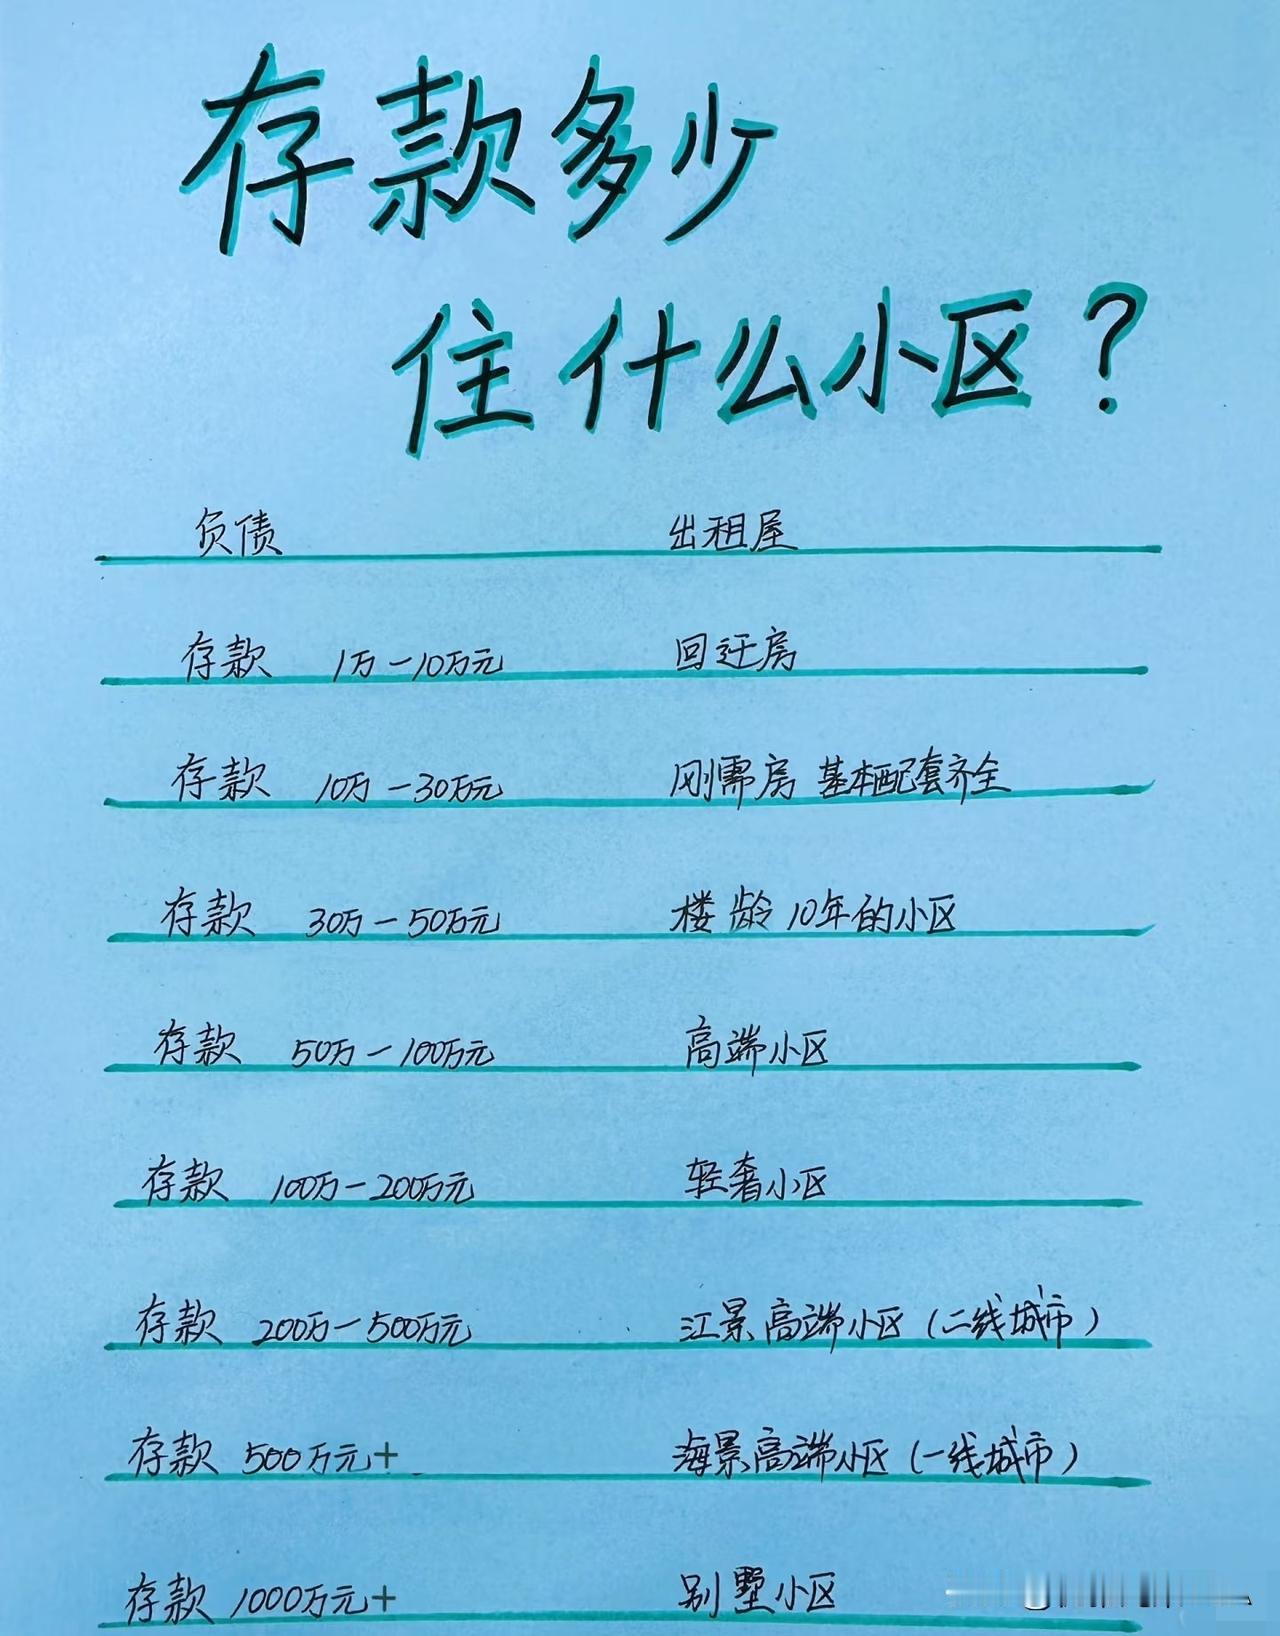 存款多少
住什么小区？
负债 出租屋
存款 1万-10万元 回迁房
存款 10万-30万元 刚需房 基本配套齐全
存款 30万-50万元 楼龄10年的小区
存款 50万-100万元 高端小区
存款 100万-200万元 轻奢小区
存款 200万-500万元 江景高端小区(二线城市)
存款 500万元+ 海景高端小区(一线城市)
存款 1000万元+ 别墅小区